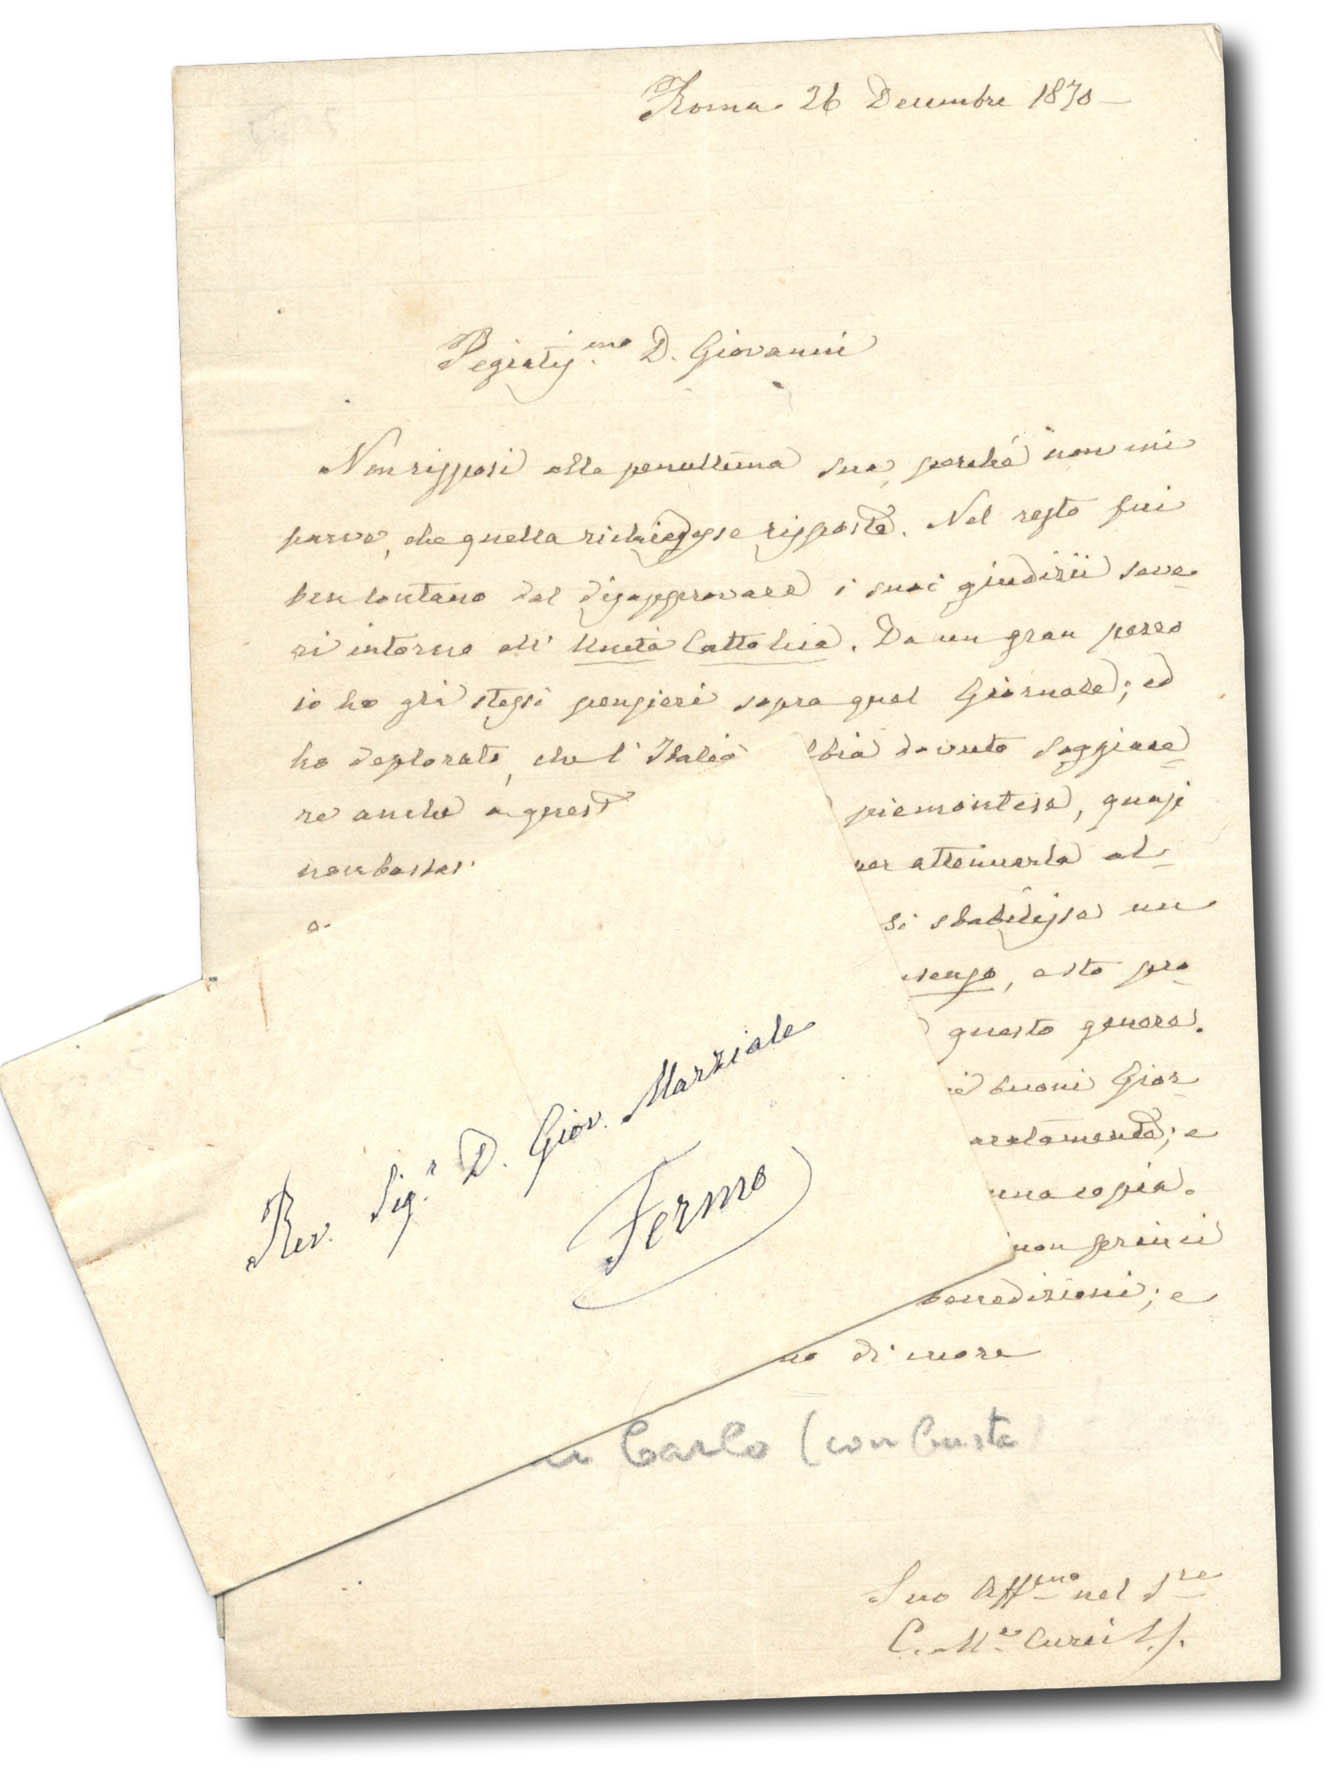 Roma 26 Decembre 1870
Pregiatiss.mo D. Giovanni
Non risposi alla penultima sua, perchè non mi
parve, che quella richiedesse risposta. Nel resto fui
ben lontano dal disapprovare i suoi giudizii seve-
ri intorno all' Unità Cattolica. Da un gran pezzo
io ho gli stessi pensieri sopra quel Giornale; ed
ho deplorato, che l' Italia bia dovuto soggiace-
re anche a quest piemontese, quasi
non bastas per attenuarla al-
a si stabilisse un
senso, esto pro
questo genere.
buoni Gior
aratamente; e
una copia.
non
benedizioni; e
no di cuore
Carlo (con busta
Suo Aff.mo nel S.re
C. M.a Curci S.J.
Rev. Sig.r D. Giov. Marziale
Fermo